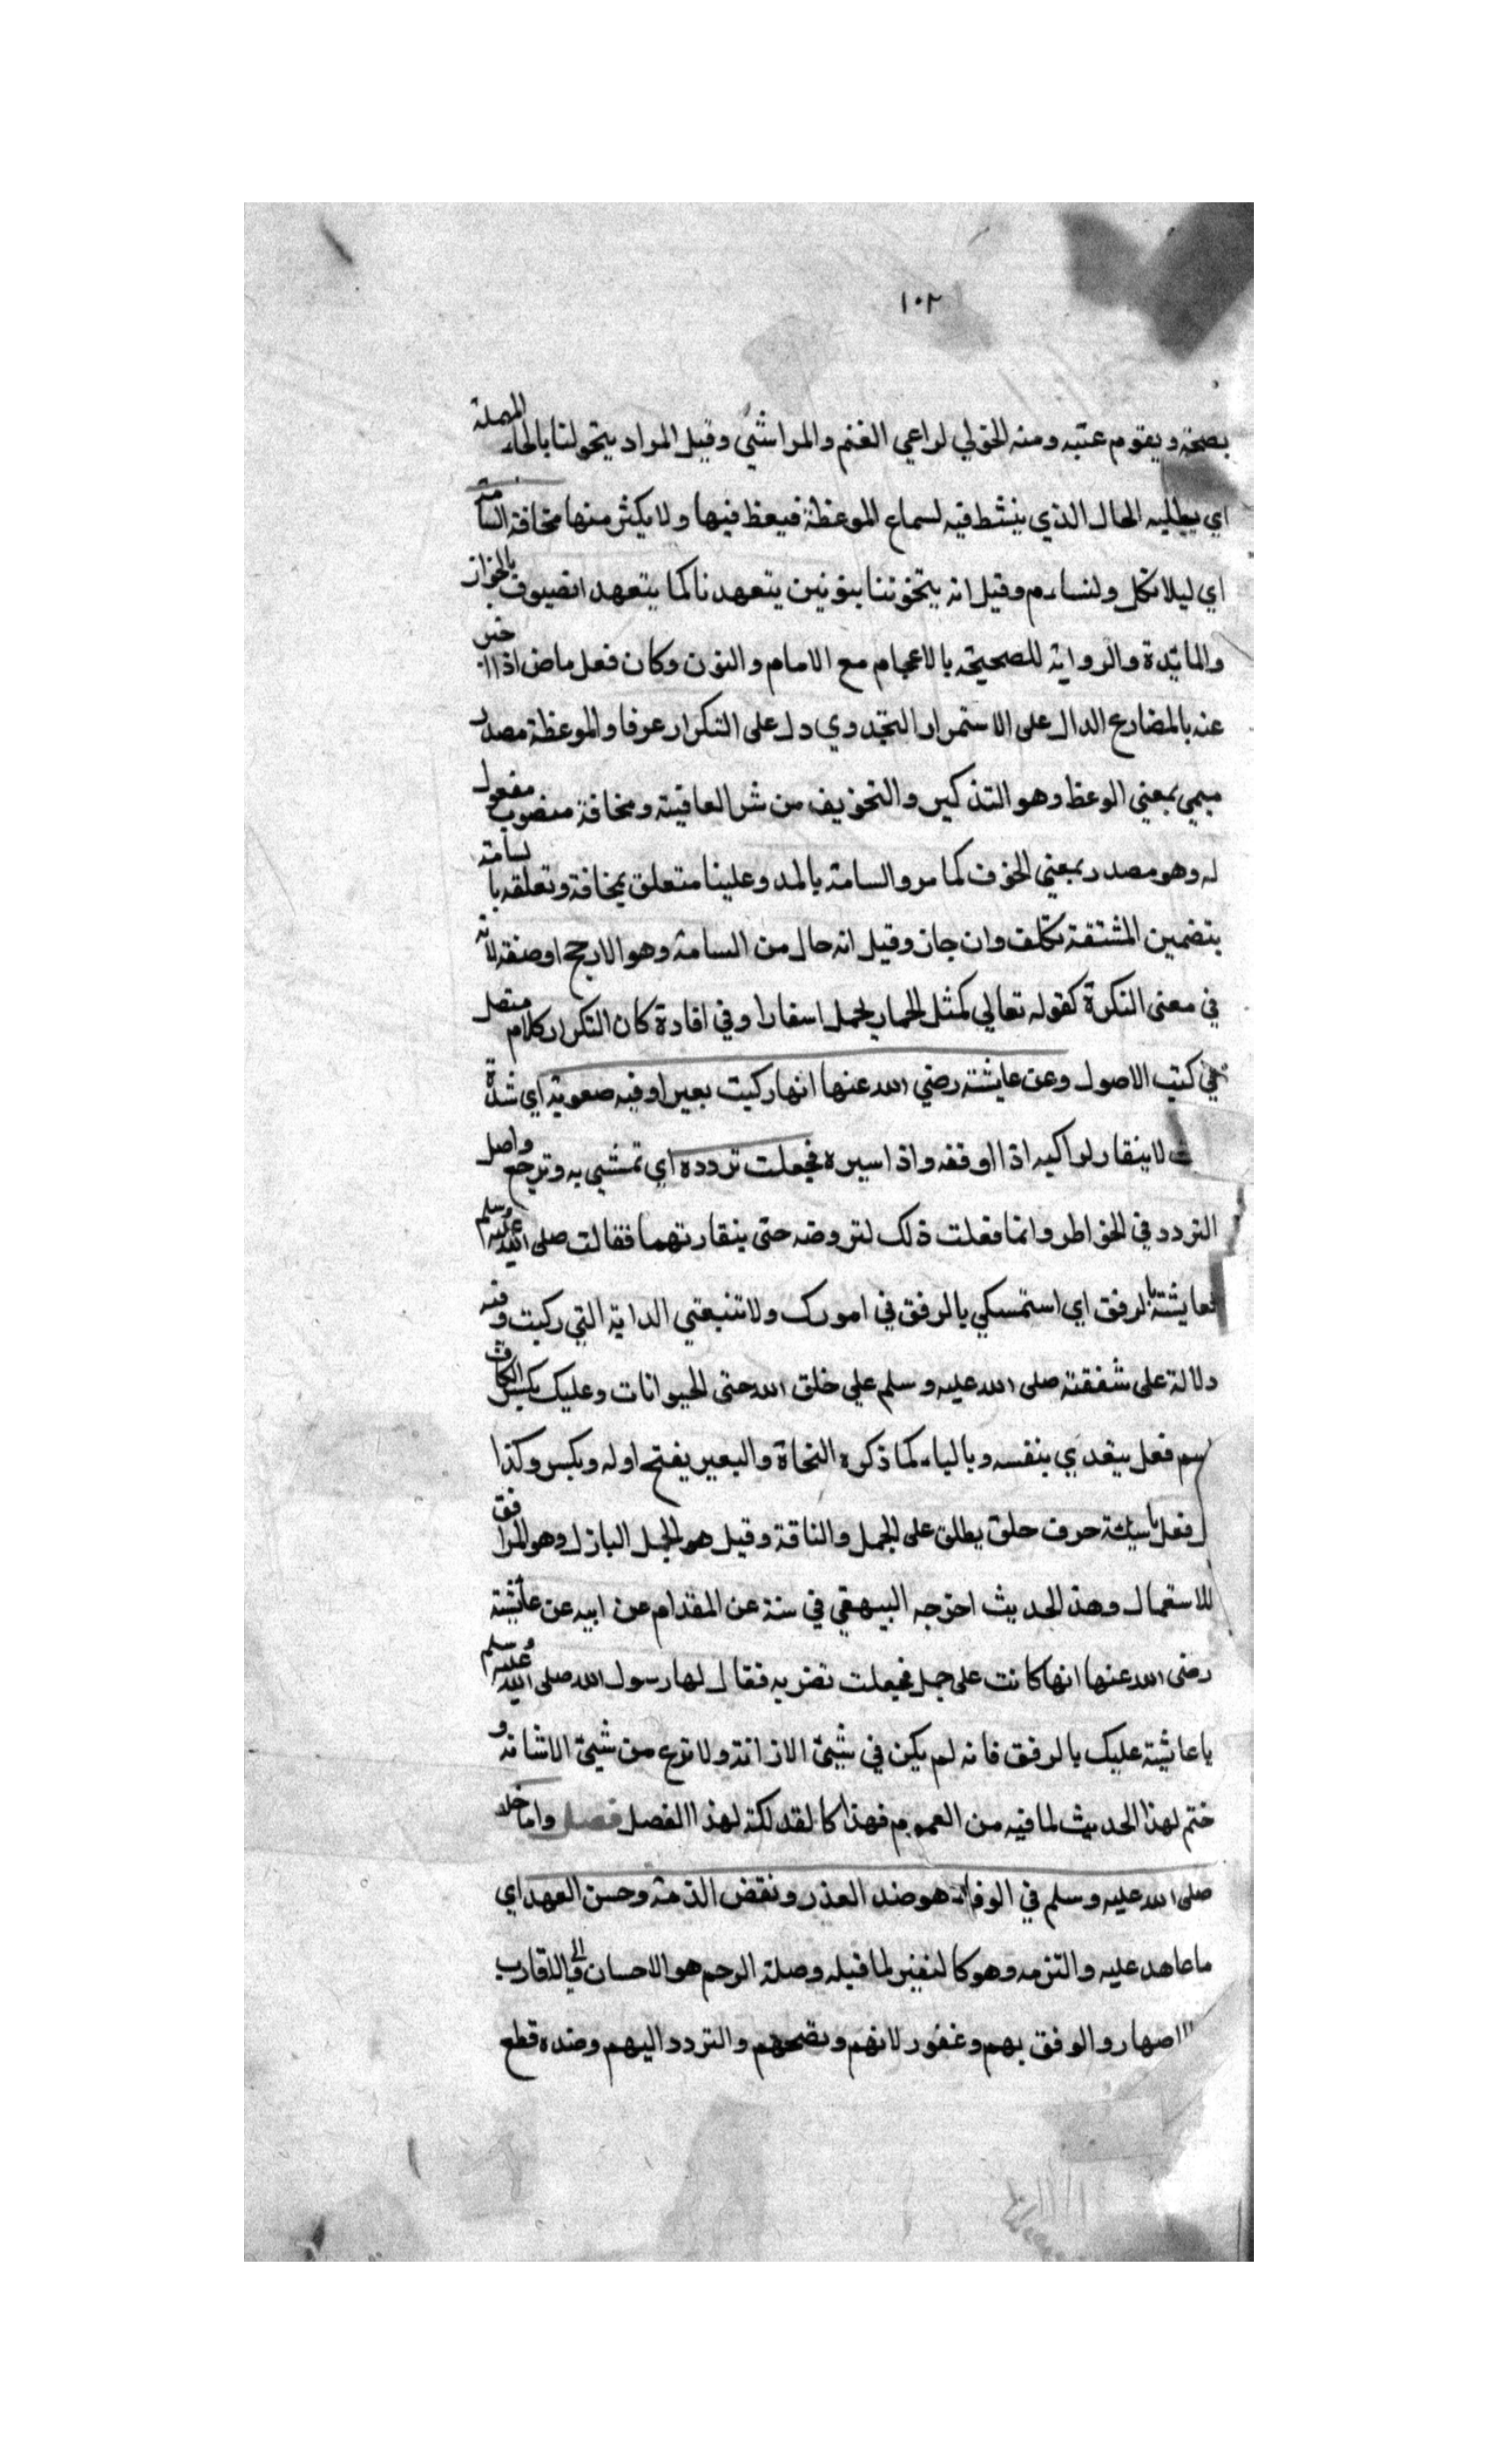 ١٠٢
بصحة ويقوم عتبه ومنه الخولي لراعي الغنم والمراشي وقيل المراد يتحولنا بالحاء المهملة
اي يطلبه الحال الذي ينشط فيه لسماع الموعظة فيعظ فيها ولا يكثر منها مخافة السامة
اي ليلا نكل ولنساءم وقيل انه يتخوننا بنونين يتعهدنا كما يتعهد الضيوف بالخوان
والمائدة والرواية للصحيحه بالاعجام مع الامام والنون وكان فعل ماض اذا اخبر
عنه بالمضارع الدال على الاستمرار التجددي دل على التكرار عرفا والموعظة مصدر
ميمي بمعني الوعظ وهو التذكير والتخويف من شر العاقبة ومخافة منصوب مفعول
له وهو مصدر بمعني الخوف كما مر والسامة بالمد وعلينا متعلق بمخافة وتعلقه بالسامة
بتضمين المشتقة تكلف وان جاز وقيل انه حال من السامة وهو الارجح او صفة لانه
في معنى النكرة كقوله تعالي كمثل الحمار يحمل اسفارا وفي افادة كان التكرار كلام متصل
في كتب الاصول وعن عايشة رضي الله عنها انها ركبت بعيرا وفيه صعوبة اي شدة
لا ينقاد لراكبه اذا اوقفه واذا سيره فجعلت تردده اي تمشي به وترجع واصل
التردد في الخواطر وانما فعلت ذلك لتروضه حتى ينقاد تهما فقالت صلى الله عليه وسلم
يعايشة بالرفق اي استمسكي بالرفق في امورك ولا تتبعتي الدابة التي ركبت وفيه
دلالة على شفقته صلى الله عليه وسلم علي خلق الله حتى الحيوانات وعليك بكسر الكاف
اسم فعل يتعدي بنفسه وبالباء كما ذكره النحاة والبعير يفتح اوله ويكسر وكذا
فعل باسيئة حرف حلق يطلق على الجمل والناقة وقيل هو الجمل البازل وهو الموافق
للاستعمال وهذ الحديث اخرجه البيهقي في سنة عن المقدام عن ابيه عن عائشة
رضى الله عنها انها كانت على جمل فجعلت تضربه فقال لها رسول الله صلى الله عليه وسلم
يا عائشة عليك بالرفق فانه لم يكن في شيئ الا زانة ولا نزع من شيئ الا شانه و
ختم لهذا الحديث لما فيه من العموم فهذا كالفذلكة لهذا الفصل فصل واما خلقه
صلى الله عليه وسلم في الوفاء هو ضد العذر ونقض الذمة وحسن العهد اي
ما عاهد عليه والتزمه وهو كالتفسير لما قبله وصلة الرحم هو الاحسان الى الاقارب
الاصهار والرفق بهم وغفور لانهم ونصحهم والتردد اليهم وضده قطع